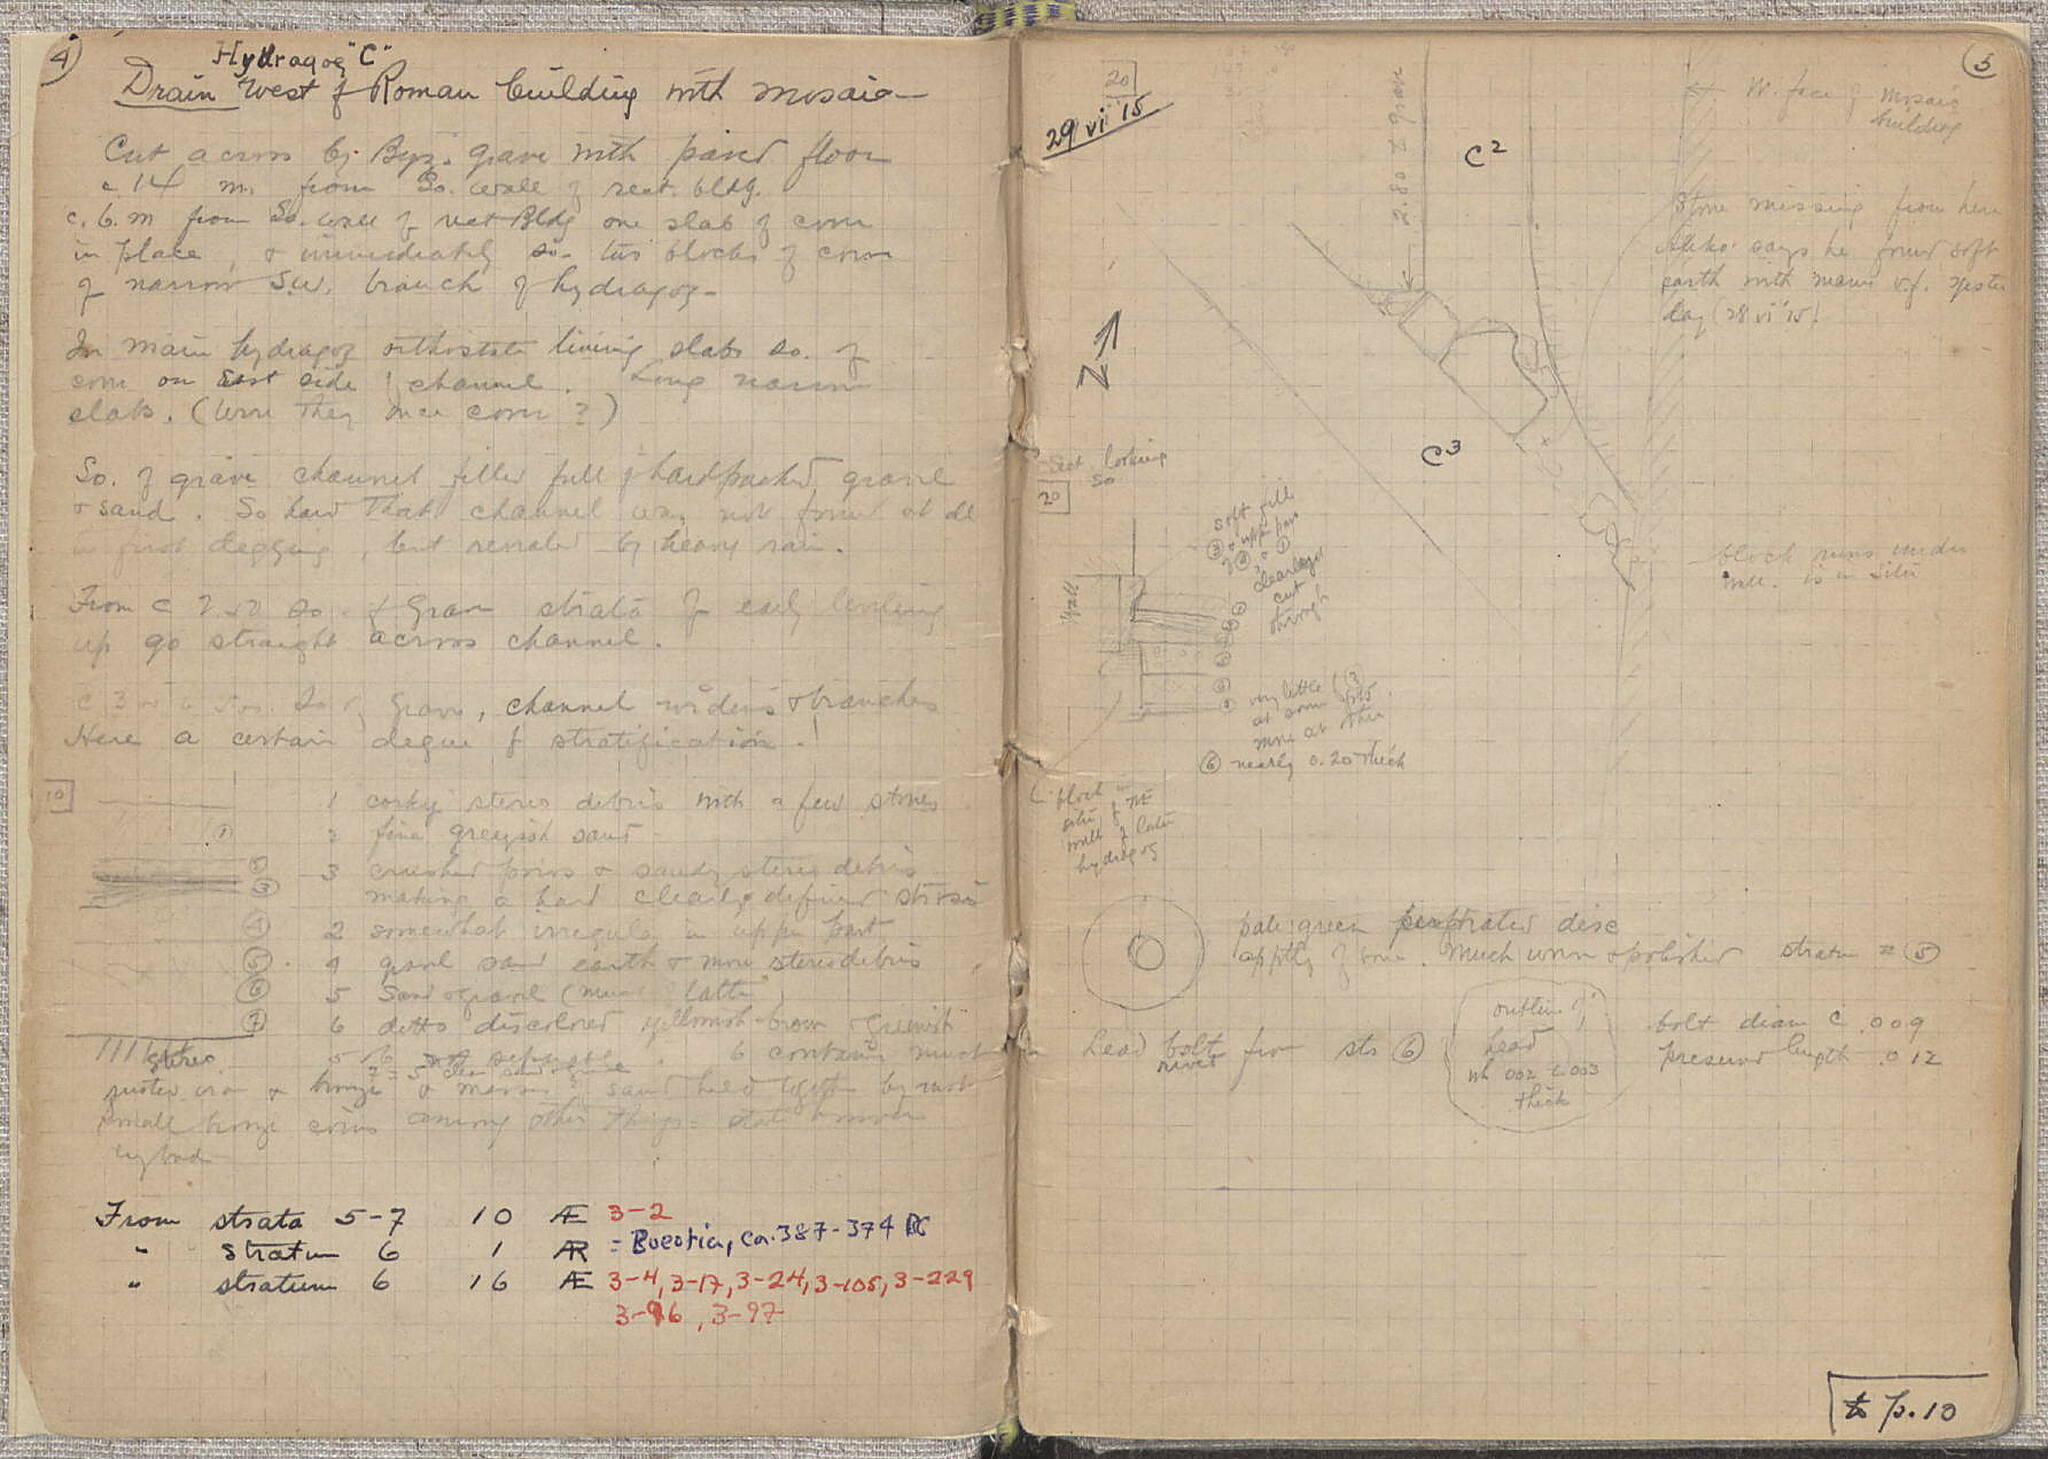 4
Hydragog "C"
Drain West of Roman building with mosaic
Cut across by Byz. grave with paved floor
c 14 m. from So. wall of rect. bldg.
c. 6. m from So. wall of rect Bldg one slab of cover
in place, & immediately so. two blocks of cover
of narrow S.W. branch of hydragog.
In main hydragog orthostate lining slabs so. of
cover on East side channel. Long narrow
slabs. (Were they once cover?)
So. of grave channel filled full of hard packed gravel
& sand. So hard that channel was not found at all
in first digging, but revealed by heavy rain.
From c 2 so. of Grave strata of early levelling
up go straight across channel.
So of Grave, channel widens & branches
Here a certain degree of stratification.
10
1 corky stereo debris with a few stones
① 2 fine greyish sand
3 crushed poros & sandy stereo debris
③ making a hard clearly defined stratum
④ 2 somewhat irregular in upper part
⑤ 4 gravel sand earth & more stereo debris
⑥ 5 Sand & gravel (much latter)
⑦ 6 ditto discolored yellowish-brown & greenish
stereo
5 6 not separable. 6 contains much
rusted iron & bronze & masses of sand held together by rust
small bronze coins among other things
From strata 5-7 10 Æ 3-2
" stratum 6 1 AR = Boeotia, ca. 387-374 BC
" stratum 6 16 Æ 3-4, 3-17, 3-24, 3-105, 3-229
3-96, 3-97
5
20
29 vi '15
2.80 to grave
C2
W. face of mosaic
building
Stone missing from here
Aleko says he found soft
earth with many v.f. yester
day (28 vi '15)
N
C3
Sect. looking
So
20
soft fill
③ & upper part
of ④ & ①
clearly
cut
through
Wall
block runs under
wall. is in situ
very little
at some spots
more at other
⑥ nearly 0.20 thick
block in
situ of NE
wall of later
hydragog
pale green perforated disc
apptly of bone. Much worn & polished stratum = ⑤
head bolt from str ⑥
rivet
outline of
head
wh 002 to 003
thick
bolt diam c .009
preserved length .012
to p. 10